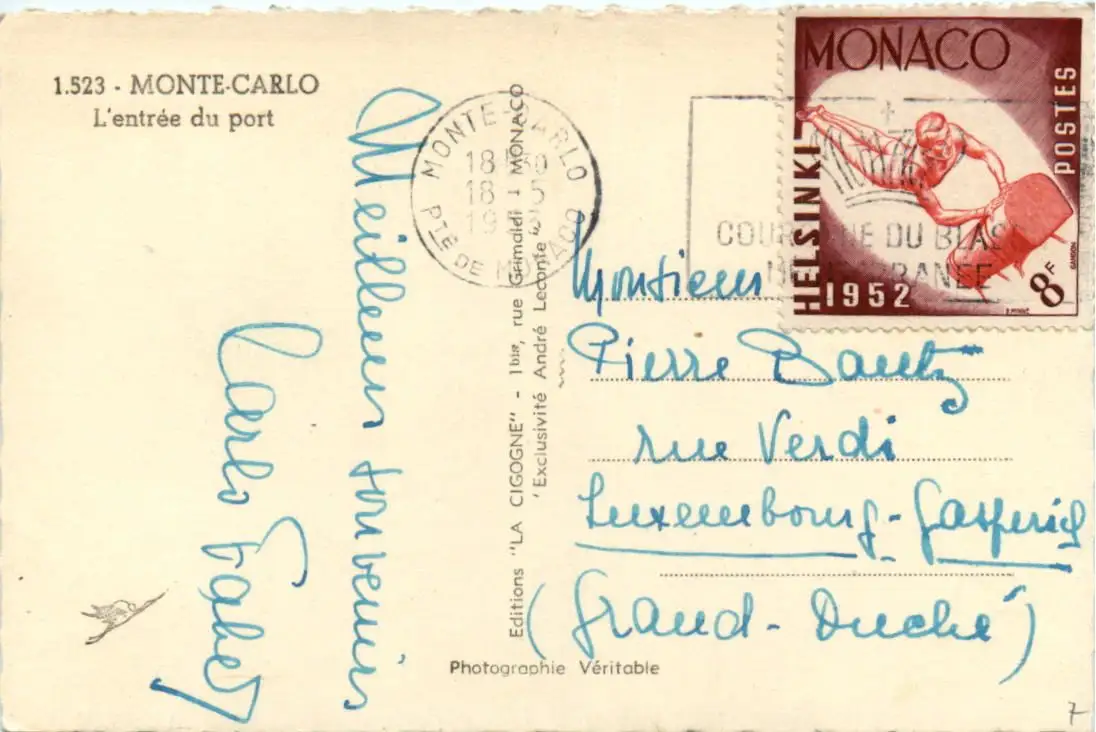 1.523 - MONTE-CARLO
L'entrée du port
Meilleurs souvenirs
Carlo
MONTE-CARLO
18 30
18 5
19
PTÉ DE MONACO
Editions "LA CIGOGNE" - 1bis, rue Grimaldi - MONACO
"Exclusivité André Leconte"
Photographie Véritable
MONACO
POSTES
HELSINKI
1952
8F
GANDON
COURONNE DU BLAS
Monsieur
Pierre Bautz
rue Verdi
Luxembourg-Gasperich
(Grand-Duché)
7